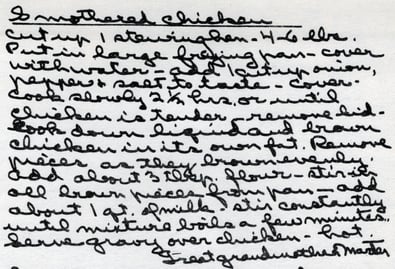 Smothered chicken
Cut up 1 stewing hen - 4-6 lbs.
Put in large frying pan - cover
with water - add 1 cut up onion,
pepper & salt to taste - cover -
cook slowly 2½ hrs. or until
chicken is tender - remove lid -
cook down liquid and brown
chicken in its own fat. Remove
pieces as they brown evenly.
Add about 3 tbsp. flour - stir in
all brown pieces from pan - add
about 1 qt. of milk - stir constantly
until mixture boils a few minutes.
Serve gravy over chicken - hot.
Great grandmother